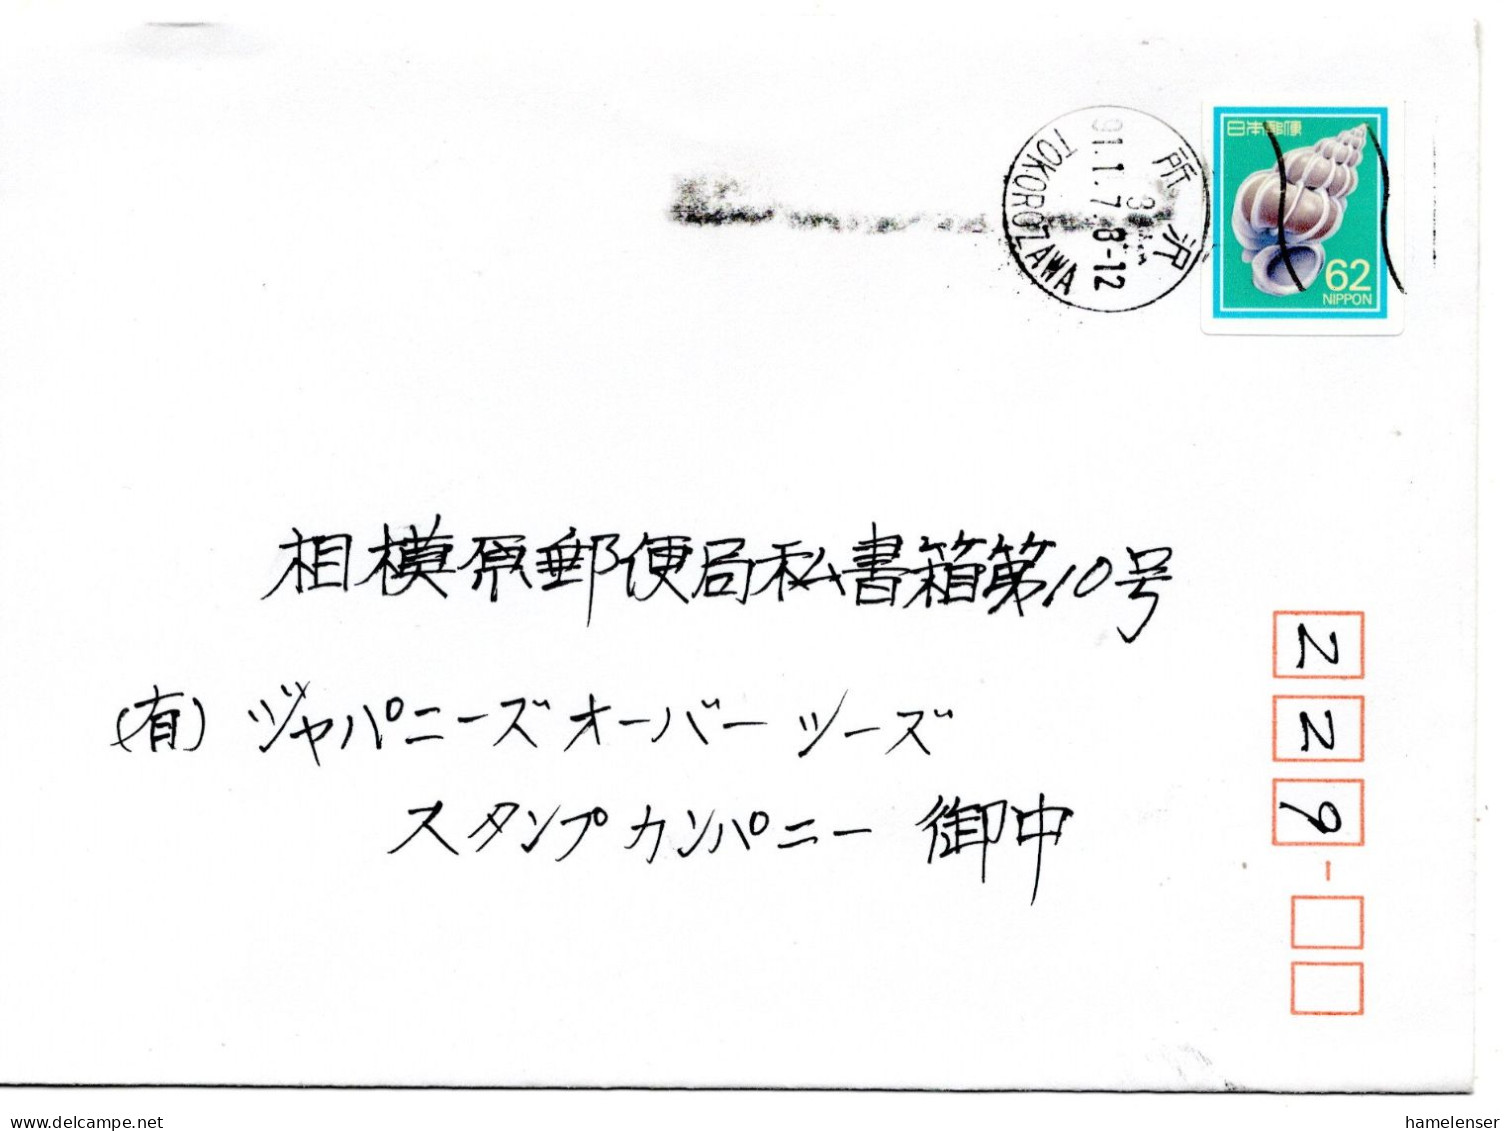 日本郵便
62
NIPPON
所沢
91.1.7.8-12
TOKOROZAWA
相模原郵便局私書箱第10号
(有) ジャパニーズオーバーシーズ
スタンプカンパニー 御中
229-
www.delcampe.net
hamelenser